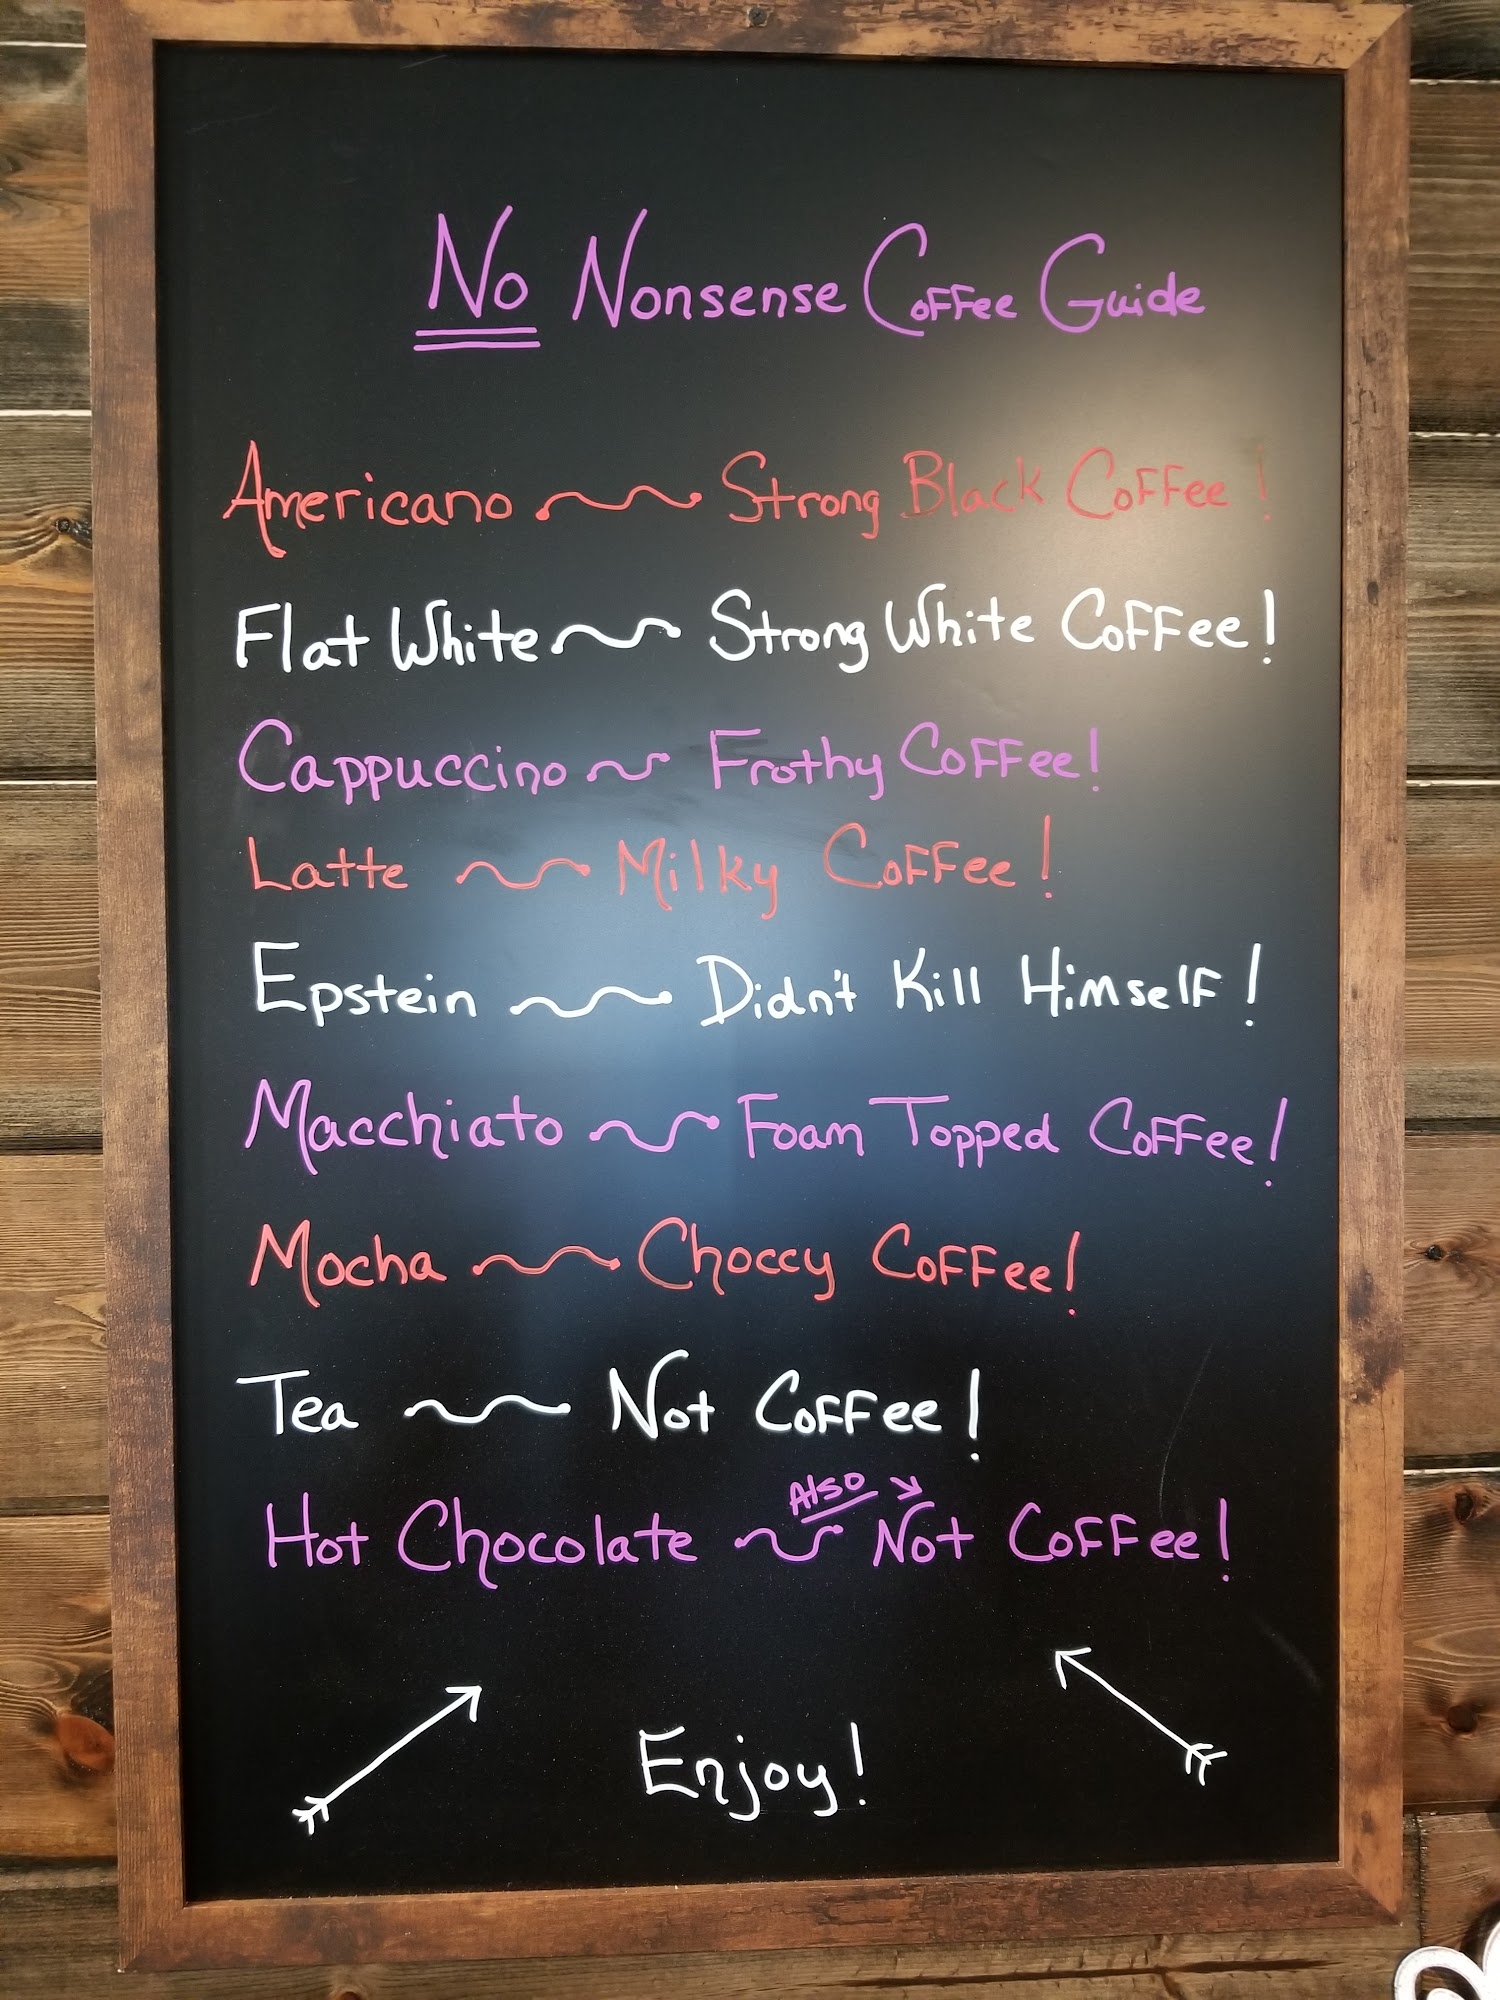 No Nonsense Coffee Guide
Americano Strong Black Coffee!
Flat White Strong White Coffee!
Cappuccino Frothy Coffee!
Latte Milky Coffee!
Epstein Didn't Kill Himself!
Macchiato Foam Topped Coffee!
Mocha Choccy Coffee!
Tea Not Coffee!
Also
Hot Chocolate Not Coffee!
Enjoy!